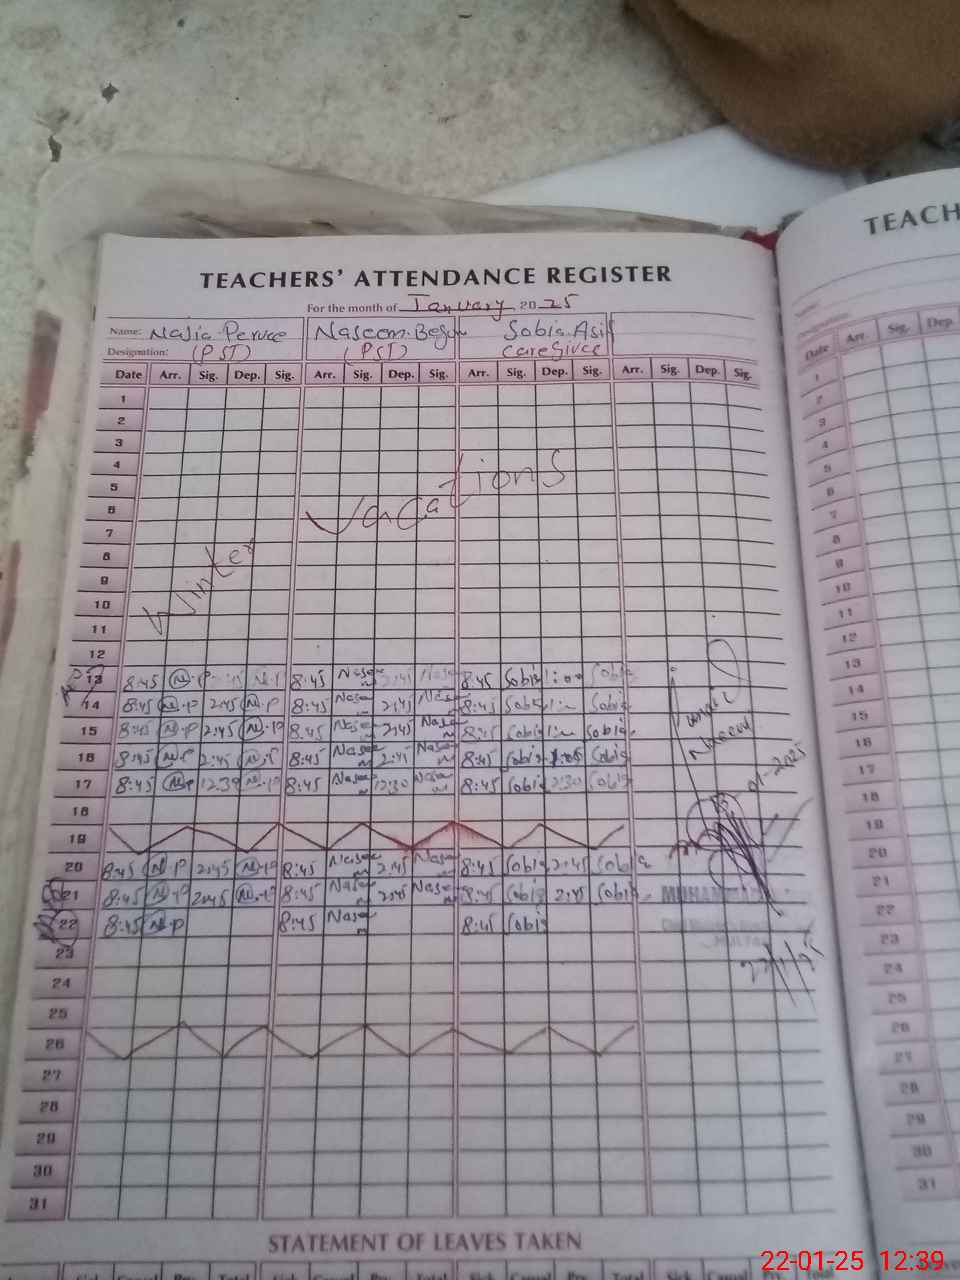 TEACHERS' ATTENDANCE REGISTER
For the month of January 2025
Name: Naseem Begum Sobia Asif
Designation: (PST) (PST) Caregiver
Date Arr. Sig. Dep. Sig. Arr. Sig. Dep. Sig. Arr. Sig. Dep. Sig. Arr. Sig. Dep. Sig.
1
2
3
4
5
6
7
8
9
10
11
12
Winter Vacations
13 8:45 N.P 8:45 Naseem 8:45 Sobia Sobia
14 8:45 N.P 2:45 N.P 8:45 Naseem 2:45 8:45 Sobia Sobia
15 8:45 N.P 2:45 N.P 8:45 Naseem 2:45 Naseem 8:45 Sobia Sobia
16 8:45 N.P 2:45 N.P 8:45 Naseem 2:45 Naseem 8:45 Sobia Sobia
17 8:45 N.P 12:30 N.P 8:45 Naseem 12:30 Naseem 8:45 Sobia Sobia
18
19
20 8:45 N.P 2:45 N.P 8:45 Naseem 2:45 Naseem 8:45 Sobia 2:45 Sobia
21 8:45 N.P 2:45 N.P 8:45 Naseem 2:45 Naseem 8:45 Sobia 2:45 Sobia
22 8:45 N.P 8:45 Naseem 8:45 Sobia
23
24
25
26
27
28
29
30
31
22/1/25
STATEMENT OF LEAVES TAKEN
TEACH
Name:
Designation:
Date Arr. Sig. Dep.
1
2
3
4
5
6
7
8
9
10
11
12
13
14
15
16
17
18
19
20
21
22
23
24
25
26
27
28
29
30
31
22-01-25 12:39